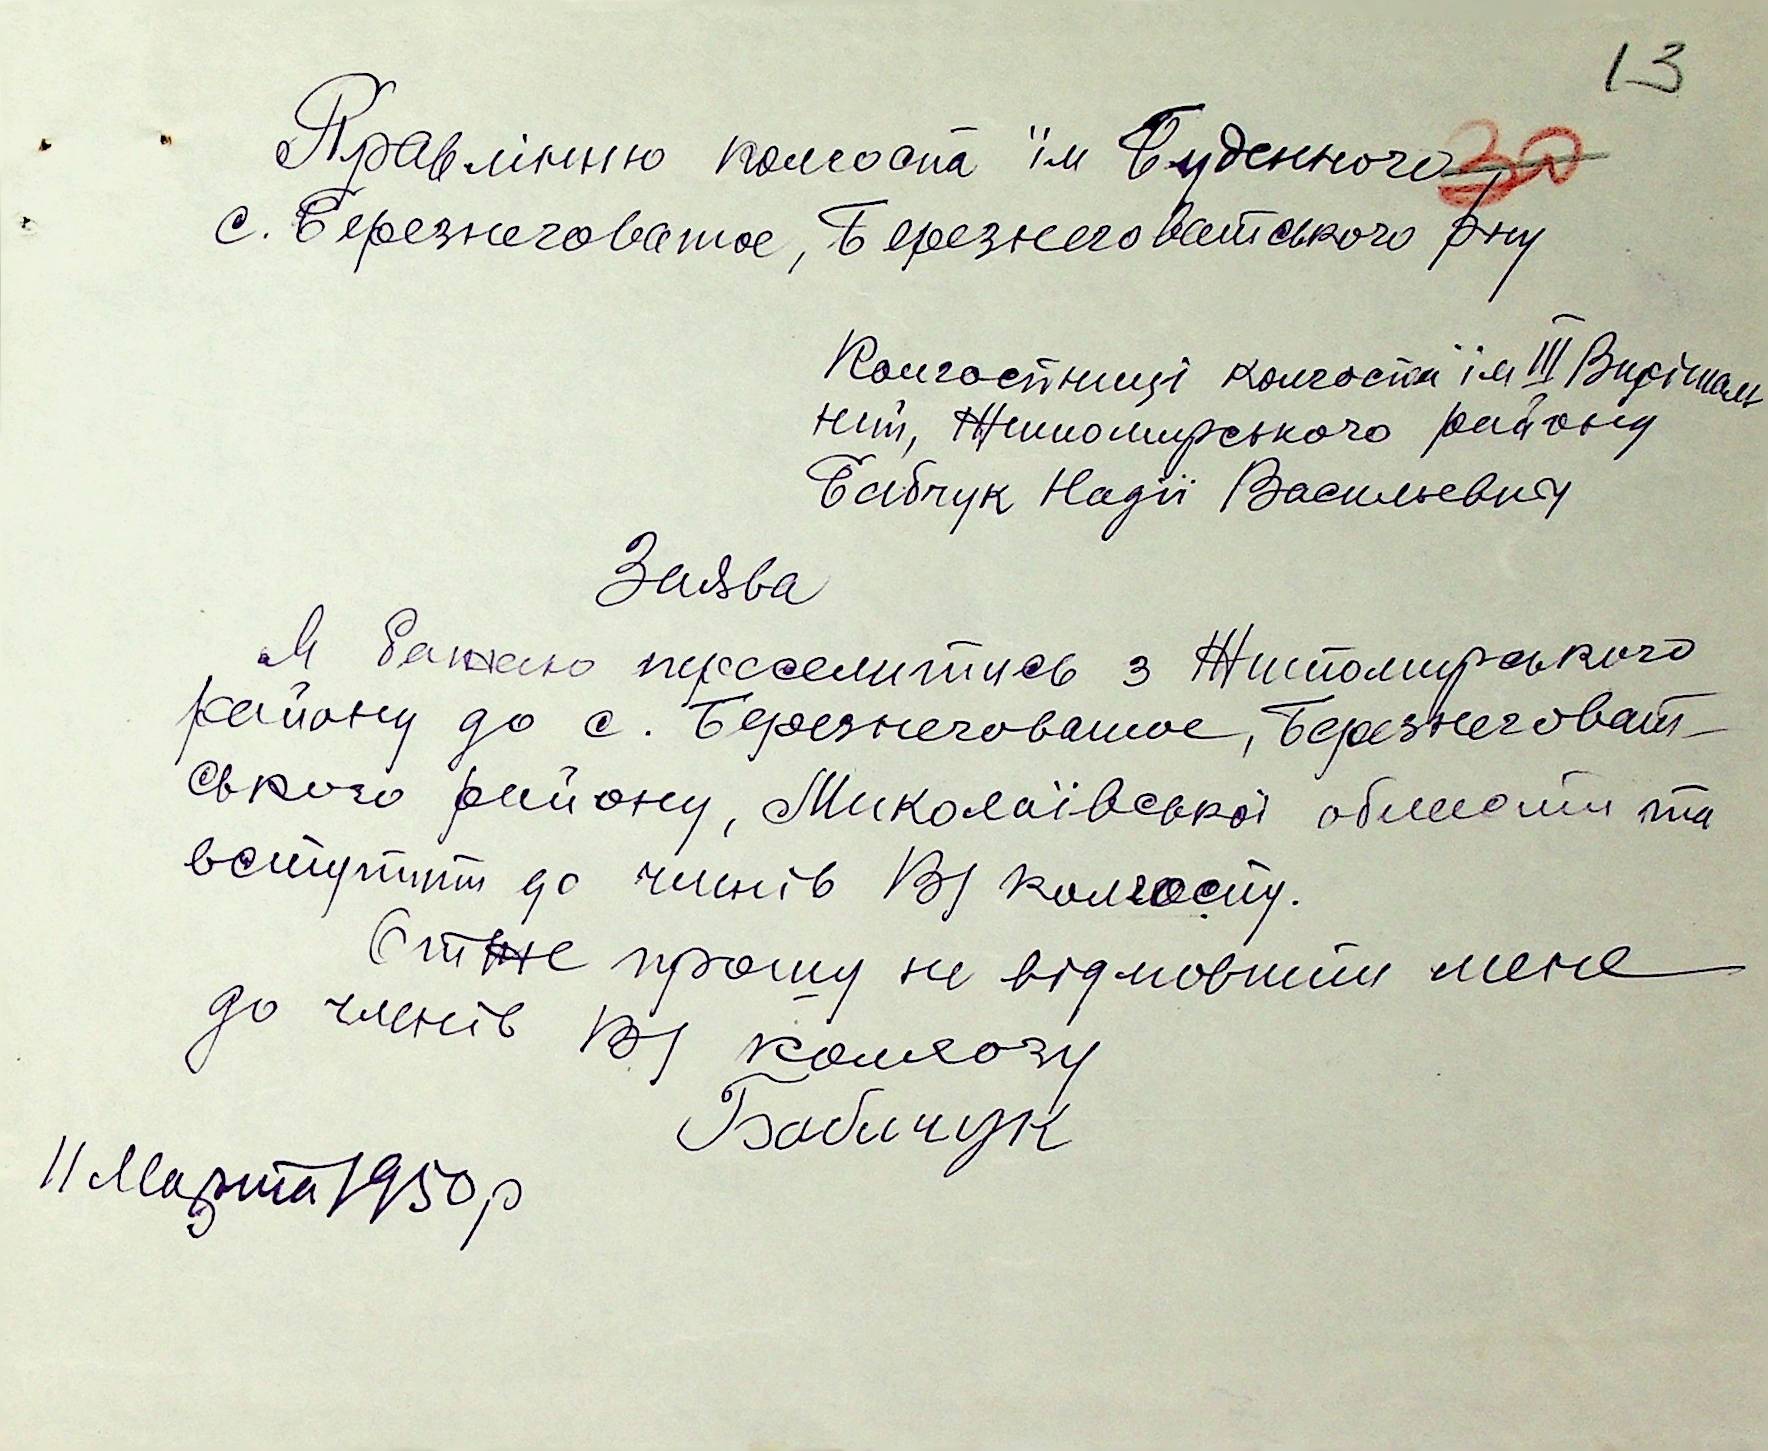 13
Правлінню колгоспа "ім Буденного 30
с. Березнеговатое, Березнеговатського рну
Колгоспниці колгоспа ім III Вирішаль
ний, Житомирського району
Бабчук Надії Васильевни
Заява
Я бажаю переселитись з Житомирського
району до с. Березнеговатое, Березнеговат-
ського району, Миколаївської области та
вступити до членів В/ колгоспу.
Отже прошу не відмовити мене
до членів В/ колхозу
Бабичук
11 Марта 1950 р